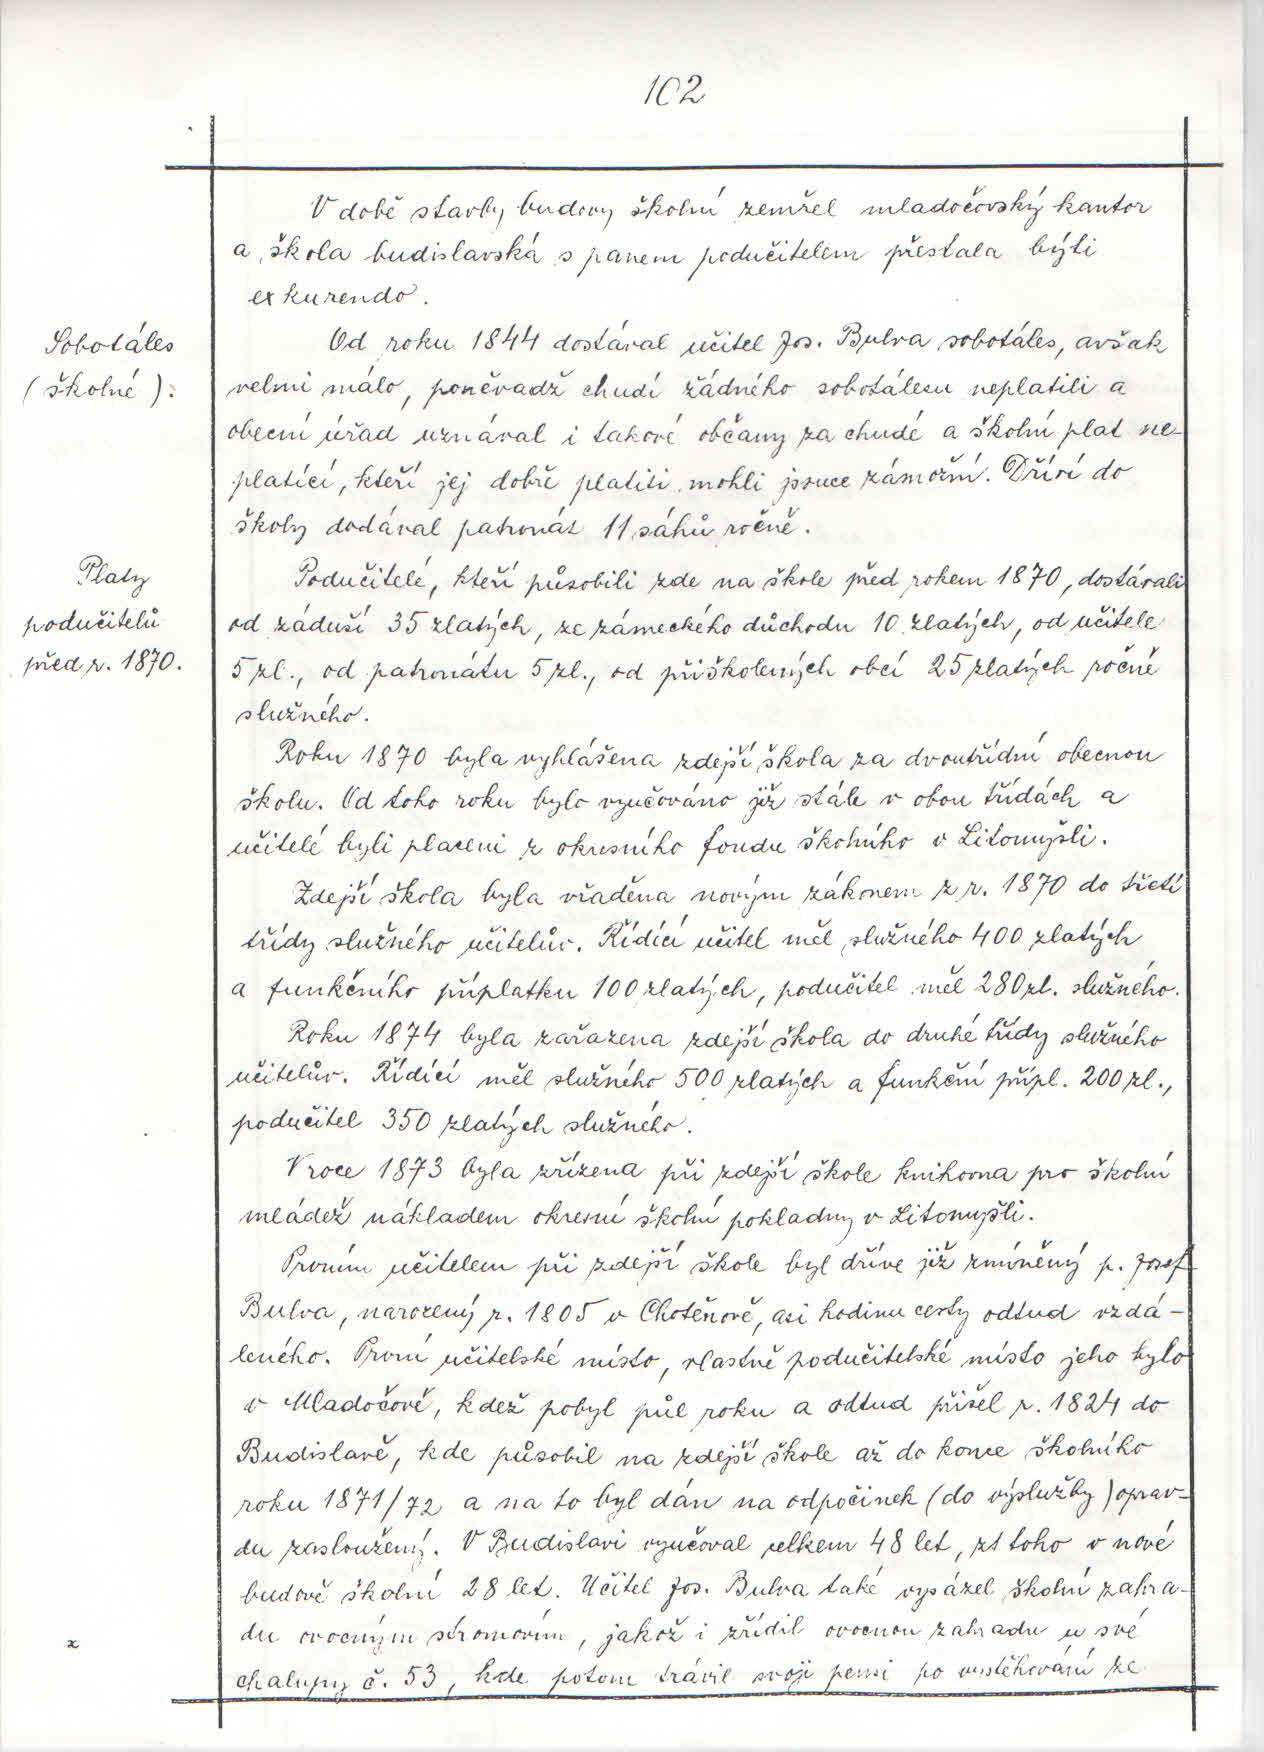 102
V době stavby budovy školní zemřel mladočovský kantor
a škola budislavská s panem podučitelem přestala býti
exkurendo.
Sobotáles
(školné):
Od roku 1844 dostával učitel Jos. Bulva sobotáles, avšak
velmi málo, poněvadž chudí žádného sobotálesu neplatili a
obecní úřad uznával i takové občany za chudé a školní plat ne-
platící, kteří jej dobře platiti mohli jsouce zámožní. Dříví do
školy dodával patronát 11 sáhů ročně.
Platy
podučitelů
před r. 1870.
Podučitelé, kteří působili zde na škole před rokem 1870, dostávali
od záduší 35 zlatých, ze zámeckého důchodu 10 zlatých, od učitele
5 zl., od patronátu 5 zl., od přiškolených obcí 25 zlatých ročně
služného.
Roku 1870 byla vyhlášena zdejší škola za dvoutřídní obecnou
školu. Od toho roku bylo vyučováno již stále v obou třídách a
učitelé byli placeni z okresního fondu školního v Litomyšli.
Zdejší škola byla vřaděna novým zákonem z r. 1870 do třetí
třídy služného učitelův. Řídící učitel měl služného 400 zlatých
a funkčního příplatku 100 zlatých, podučitel měl 280 zl. služného.
Roku 1874 byla zařazena zdejší škola do druhé třídy služného
učitelův. Řídící měl služného 500 zlatých a funkční přípl. 200 zl.,
podučitel 350 zlatých služného.
V roce 1873 byla zřízena při zdejší škole knihovna pro školní
mládež nákladem okresní školní pokladny v Litomyšli.
Prvním učitelem při zdejší škole byl dříve již zmíněný p. Josef
Bulva, narozený r. 1805 v Chotěnově, asi hodinu cesty odtud vzdá-
leného. První učitelské místo, vlastně podučitelské místo jeho bylo
v Mladočově, kdež pobyl půl roku a odtud přišel r. 1824 do
Budislavě, kde působil na zdejší škole až do konce školního
roku 1871/72 a na to byl dán na odpočinek (do výslužby) oprav-
du zasloužený. V Budislavi vyučoval celkem 48 let, z toho v nové
budově školní 28 let. Učitel Jos. Bulva také vysázel školní zahra-
du ovocným stromovím, jakož i zřídil ovocnou zahradu u své
x
chalupy č. 53, kde potom trávil svoji pensi po vystěhování ze